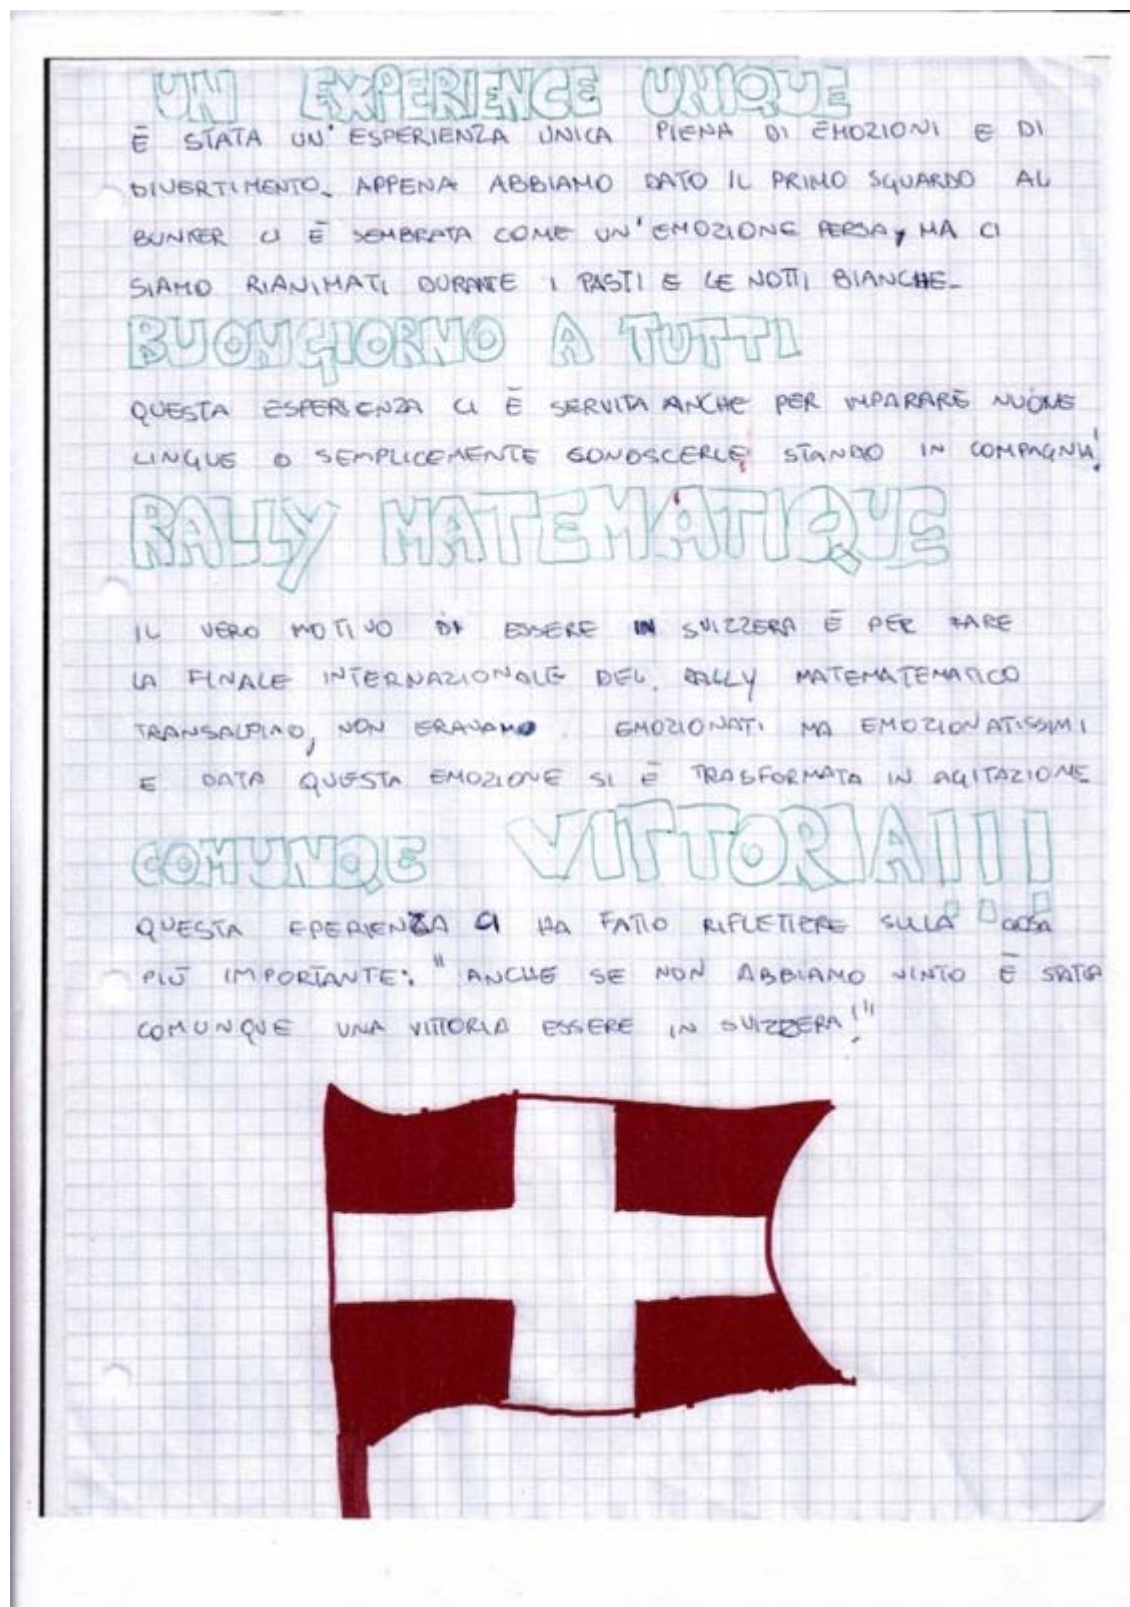 UN EXPERIENCE UNIQUE
È STATA UN' ESPERIENZA UNICA PIENA DI EMOZIONI E DI
DIVERTIMENTO. APPENA ABBIAMO DATO IL PRIMO SGUARDO AL
BUNKER CI È SEMBRATA COME UN'EMOZIONE PERSA, MA CI
SIAMO RIANIMATI DURANTE I PASTI E LE NOTTI BIANCHE.
BUONGIORNO A TUTTI
QUESTA ESPERIENZA CI È SERVITA ANCHE PER IMPARARE NUOVE
LINGUE O SEMPLICEMENTE CONOSCERLE STANDO IN COMPAGNIA!
RALLY MATEMATIQUE
IL VERO MOTIVO DI ESSERE IN SVIZZERA È PER FARE
LA FINALE INTERNAZIONALE DEL RALLY MATEMATEMATICO
TRANSALPINO, NON ERAVAMO EMOZIONATI MA EMOZIONATISSIMI
E DATA QUESTA EMOZIONE SI È TRASFORMATA IN AGITAZIONE
COMUNQE VITTORIA!!!
QUESTA EPERIENZA CI HA FATTO RIFLETTERE SULLA COSA
PIÙ IMPORTANTE: "ANCHE SE NON ABBIAMO VINTO È STATA
COMUNQUE UNA VITTORIA ESSERE IN SVIZZERA!"